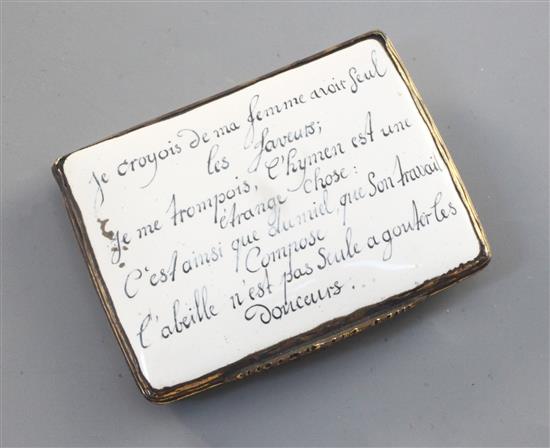 Je croyois de ma femme avoir seul
les faveurs;
Je me trompois, l'hymen est une
étrange chose:
C'est ainsi que du miel que Son travail
Compose
l'abeille n'est pas Seule a gouter les
Douceurs.